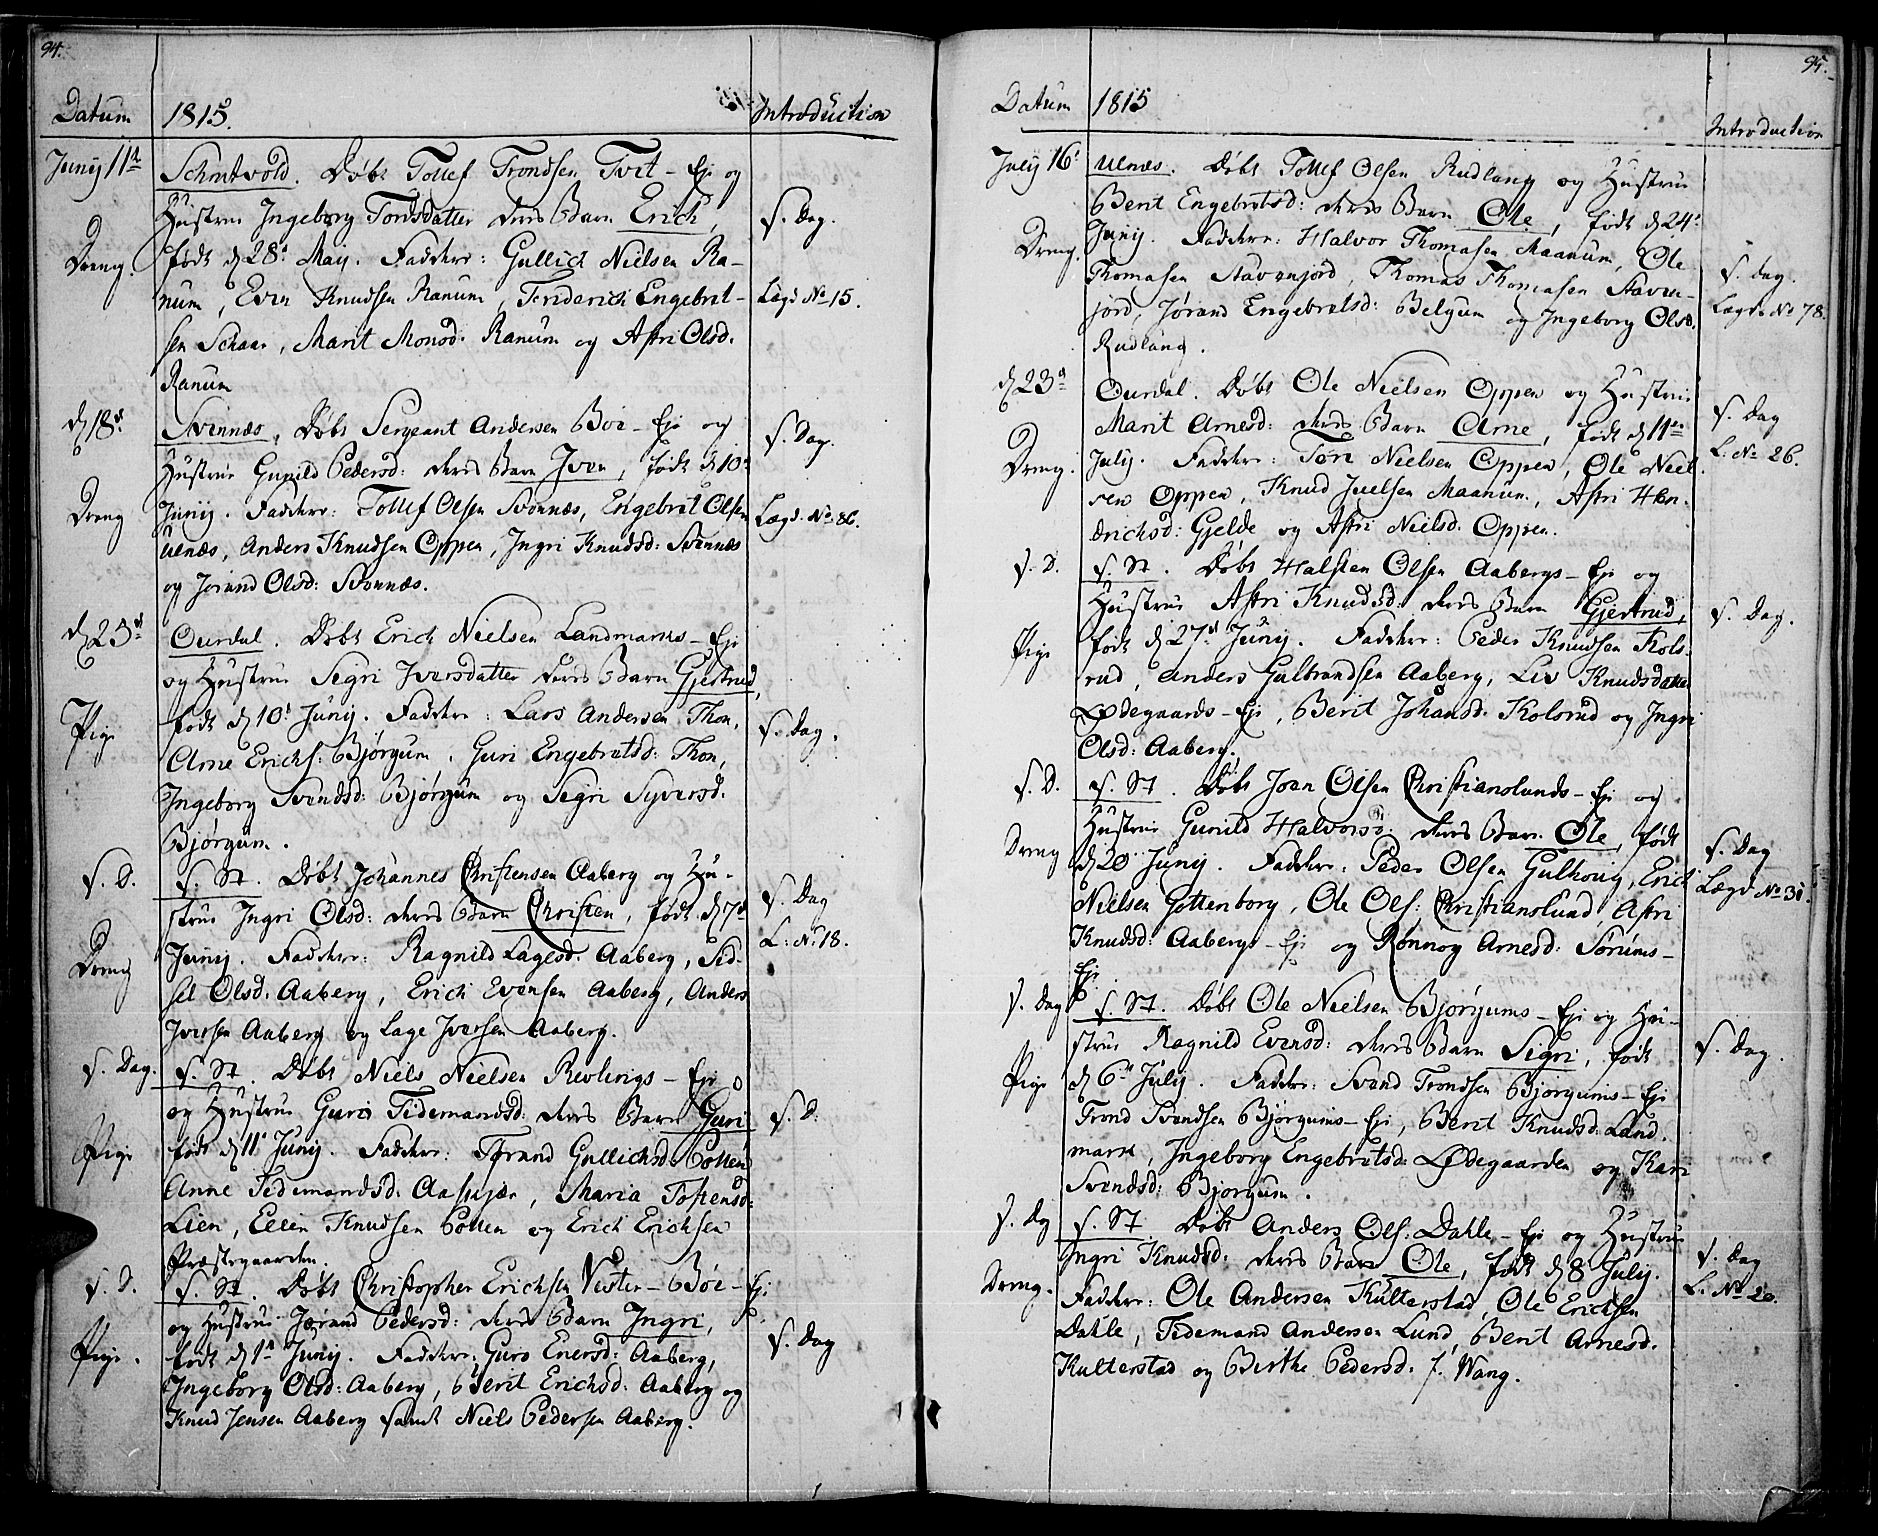 94.
Datum 1815. Introduction
Junij 11te Schrutvold. Døbt Tollef Trondsen Tvet - Eje og
Hustrue Ingeborg Tordsdatter deres Barn Erich, s. Dag.
Dreng. født d 28d May. Faddere: Gullich Nielsen Ra-
num, Even Knudsen Ranum, Friderich Engebret- Lægd No 15.
sen Schaar, Marit Monsd: Ranum og Astri Olsd.
Ranum
d 18d Svennæs. Døbt Sergeant Andersen Bøe - Eje og s. Dag.
Hustrue Gunild Pedersd: deres Barn Iver, født d 10d
Dreng Junij. Faddere: Tollef Olsen Svennæs, Engebret Olsen Lægd. No. 86.
Ulnæs, Anders Knudsen Oppen, Ingri Knudsd: Svennæs
og Jørand Olsd: Svennæs.
d 25d Ourdal. Døbt Erich Nielsen Landmarks - Eje
og Hustrue Segri Iversdatter deres Barn Gjertrud,
Pige født d 10d Junij. Faddere: Lars Andersen Thon, s. Dag.
Arne Erichs: Bjørgum, Guri Engebretsd: Thon,
Ingeborg Svendsd: Bjørgum og Segri Syversd.
Bjørgum.
s. D. s. St. Døbt Johannes Christensen Aaberg og Hu- s. Dag
strue Ingri Olsd: deres Barn Christen, født d 7d
Dreng Junij. Faddere: Ragnild Lagesd: Aaberg, Sid- L: No 18.
sel Olsd: Aaberg, Erich Evensen Aaberg, Anders
Iversen Aaberg og Lage Iversen Aaberg.
s. Dag. s. St. Døbt Niels Nielsen Revlings - Eje
og Hustrue Guri Tidemandsd: deres Barn Guri s. D.
Pige født d 11d Junij. Faddere: Tørand Gullichsd: Potten
Anne Tidemandsd: Aassejer, Maria Tostensd:
Lien, Ellin Knudsen Potten og Erich Erichsen
Præstegaarden.
s. D. s. St. Døbt Christopher Erichsen Vester - Bøe - Eje
og Hustrue Jørand Pedersd: deres Barn Ingri,
Pige. født d 1d Junij. Faddere: Guro Enersd: Aaberg, s. Dag
Ingeborg Olsd: Aaberg, Berit Erichsd: Aaberg og
Knud Jensen Aaberg samt Niels Pedersen Aaberg.
95.
Datum 1815 Introduction
July 16d Ulnæs. Døbt Tollef Olsen Rudlang og Hustrue
Berit Engebretsd: deres Barn Ole, født d 24d
Dreng. Junij. Faddere: Halvor Thomasen Maanum, Ole s. Dag.
Thomasen Stavenjord, Thomas Thomasen Staven-
jord, Jørand Engebretsd: Belgum og Ingeborg Olsd. Lægd. No 78.
Rudlang.
d 23d Ourdal. Døbt Ole Nielsen Oppen og Hustrue s. Dag
Marit Arnesd: deres Barn Arne, født d 11te
Dreng. Julij. Faddere: Tore Nielsen Oppen, Ole Niel- L. No 26.
sen Oppen, Knud Juelsen Maanum, Astri Hen-
drichsd: Gjelde og Astri Nielsd. Oppen.
s. D. s. St. Døbt Halsten Olsen Aabergs - Eje og
Hustrue Astri Knudsd: deres Barn Gjertrud, s. Dag.
Pige født d 27d Junij. Faddere: Peder Knudsen Kols-
rud, Anders Gulbrandsen Aaberg, Liv Knudsdatter
Ødegaards - Eje, Berit Johansd. Kolsrud og Ingri
Olsd: Aaberg.
s. D. s. St. Døbt Joen Olsen Christianslunds - Eje og
Hustrue Gunild Halvorsd: deres Barn Ole, født s. Dag
Dreng d 20 Junij. Faddere: Peder Olsen Gulhoug, Erich Lægd No 31.
Nielsen Gottenborg, Ole Ols: Christianslund, Astri
Knudsd: Aabergs - Eje og Rønnog Arnesd: Sørums -
Eje.
s. Dag s. St. Døbt Ole Nielsen Bjørgums - Eje og Hu-
strue Ragnild Evensd: deres Barn Sigri, født s. Dag.
Pige d 6te July. Faddere: Svend Trondsen Bjørgums - Eje
Trond Svendsen Bjørgums - Eje, Berit Knudsd: Land-
mark, Ingeborg Engebretsd: Ødegaarden og Kari
Svendsd: Bjørgum.
s. Dg s. St. Døbt Anders Ols: Dahle - Eje og Hustrue
Ingri Knudsd: deres Barn Ole, født d 8 July. s. Dag
Dreng. Faddere: Ole Andersen Kulterstad, Ole Erichsen L. No 20.
Dahle, Tidemand Andersen Lund, Berit Arnesd.
Kulterstad og Birthe Pedersd. f. Wang.